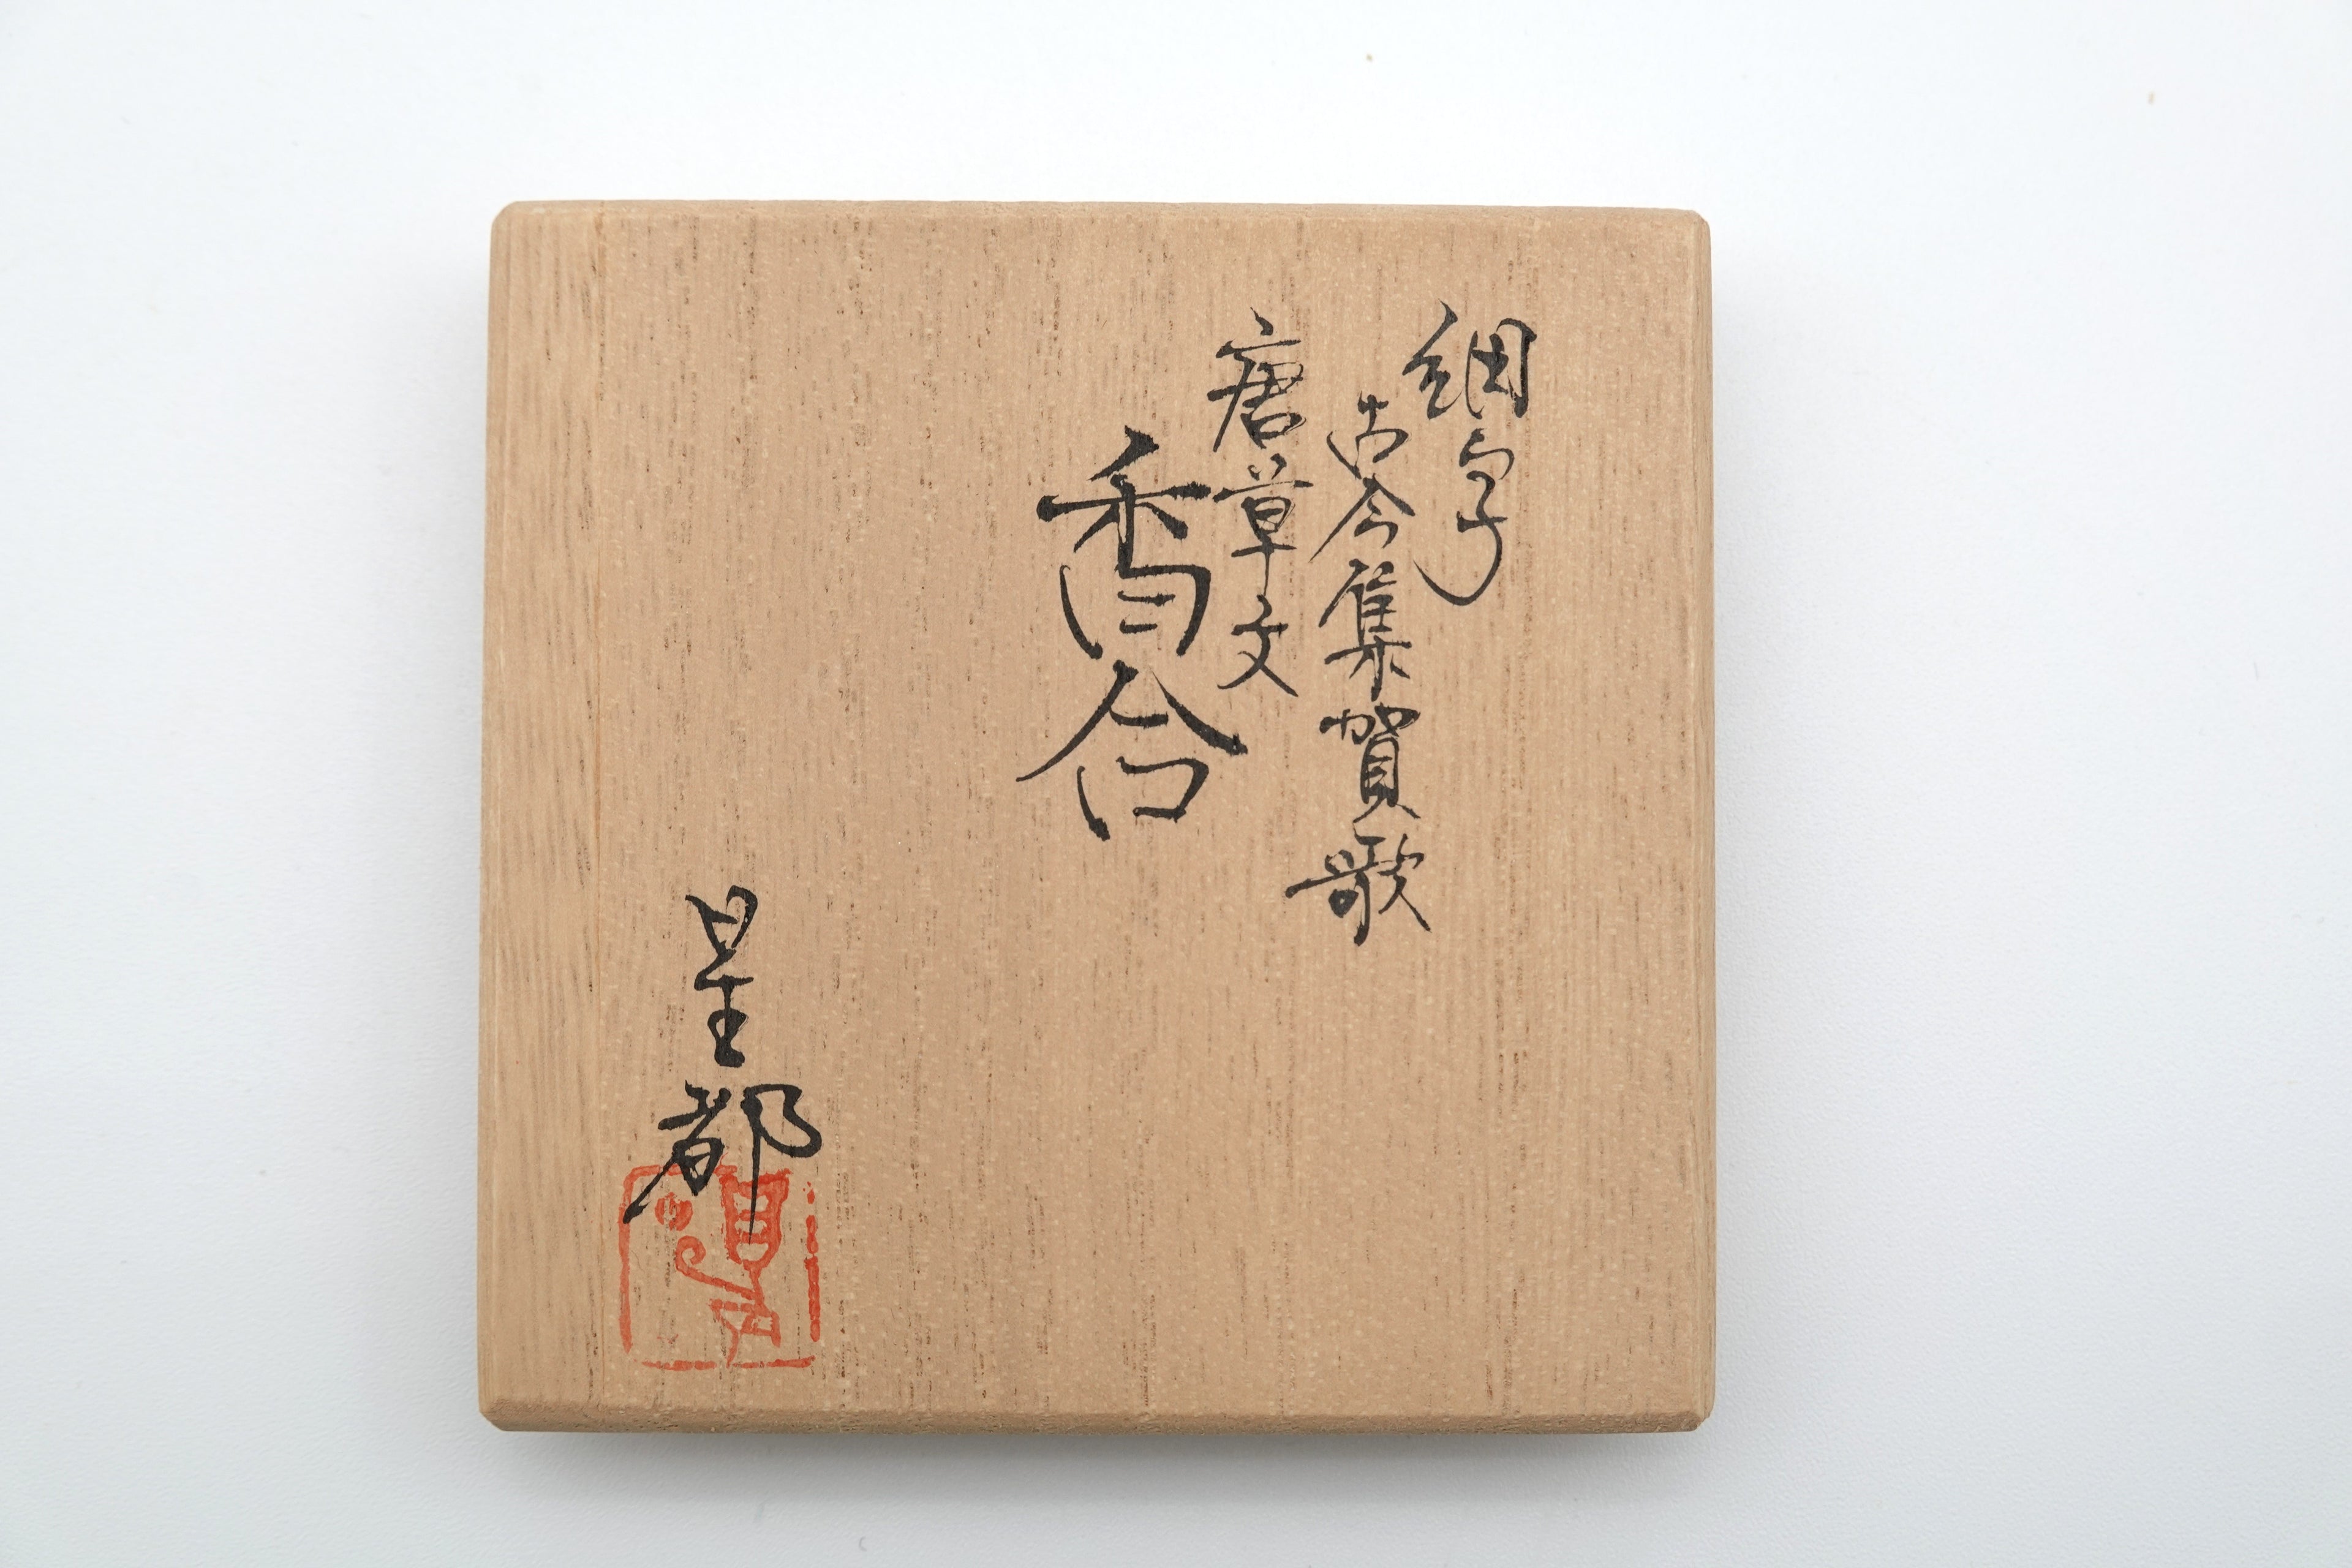 細字
古今集賀歌
唐草文
香合
星都